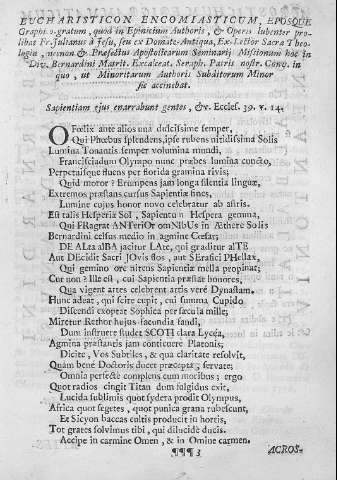 EUCHARISTICON ENCOMIASTICUM, EPOSQUE
Graphicò-gratum, quod in Epinicium Authoris, & Operis lubenter pro-
libat Fr. Julianus à Jesu, seu ex Domate-Antiqua, Ex-Lector Sacræ Theo-
logiæ, necnon & Præfectus Apostolicorum Seminarii Missionum hac in
Div. Bernardini Matrit. Excalceat. Seraph. Patris nostr. Conv. in
quo, ut Minoritarum Authoris Subditorum Minor
sic accinebat.
Sapientiam ejus enarrabunt gentes, &c. Eccles. 39. v. 14.
O Fœlix ante alios una dulcissime semper,
Qui Phœbus splendens, ipse rubens nitidissima Solis
Lumina Tonantis semper volumina mundi,
Francisciadum Olympo nunc præbes lumina cuncto,
Perpetuisque fluens per florida gramina rivis;
Quid moror? Erumpens jam longa silentia linguæ,
Extremos præstans cursus Sapientiæ fines,
Lumine cujus honor novo celebratur ab astris.
Est talis Hesperiæ Sol, Sapientum Hespera gemma,
Qui FRagrat ANTeriOr omNIbUs in Æthere Solis
Bernardini celsus medio in agmine Cæsar;
DE ALta alBA jacitur LAte, qui graditur alTE
Aut DEcidit Sacri JOvis flos, aut SErafici PHellax,
Qui gemino ore nitens Sapientiæ mella propinat;
Cur non? Ille est, cui Sapientia præstat honores,
Qua vigent artes celebrent artis verè Dynastam.
Hunc adeat, qui scire cupit, cui summa Cupido
Discendi exoptat Sophica per sæcula mille;
Miretur Rethor hujus facundia fandi,
Dum instructe studet SCOTI clara Lycea,
Agmina præstantis jam conticuere Platonis;
Dicite, Vos Subtiles, & qua claritate resolvit,
Quàm benè Doctoris ducet præcepta; servate;
Omnia perfectè complens cum moribus; ergo
Quot radios cingit Titan dum fulgidus exit,
Lucida sublimis quot sydera prodit Olympus,
Africa quot segetes, quot punica grana rubescunt,
Et Sicyon baccas cultis producit in hortis,
Tot grates solvimus tibi, qui dilucidè ducis.
Accipe in carmine Omen, & in Omine carmen.
¶¶¶ 3
ACROS-